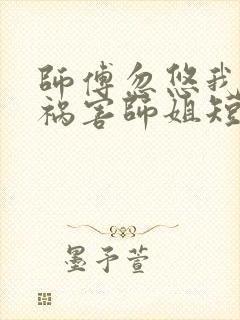 師傅忽悠我
祸害師姐短
墨予萱